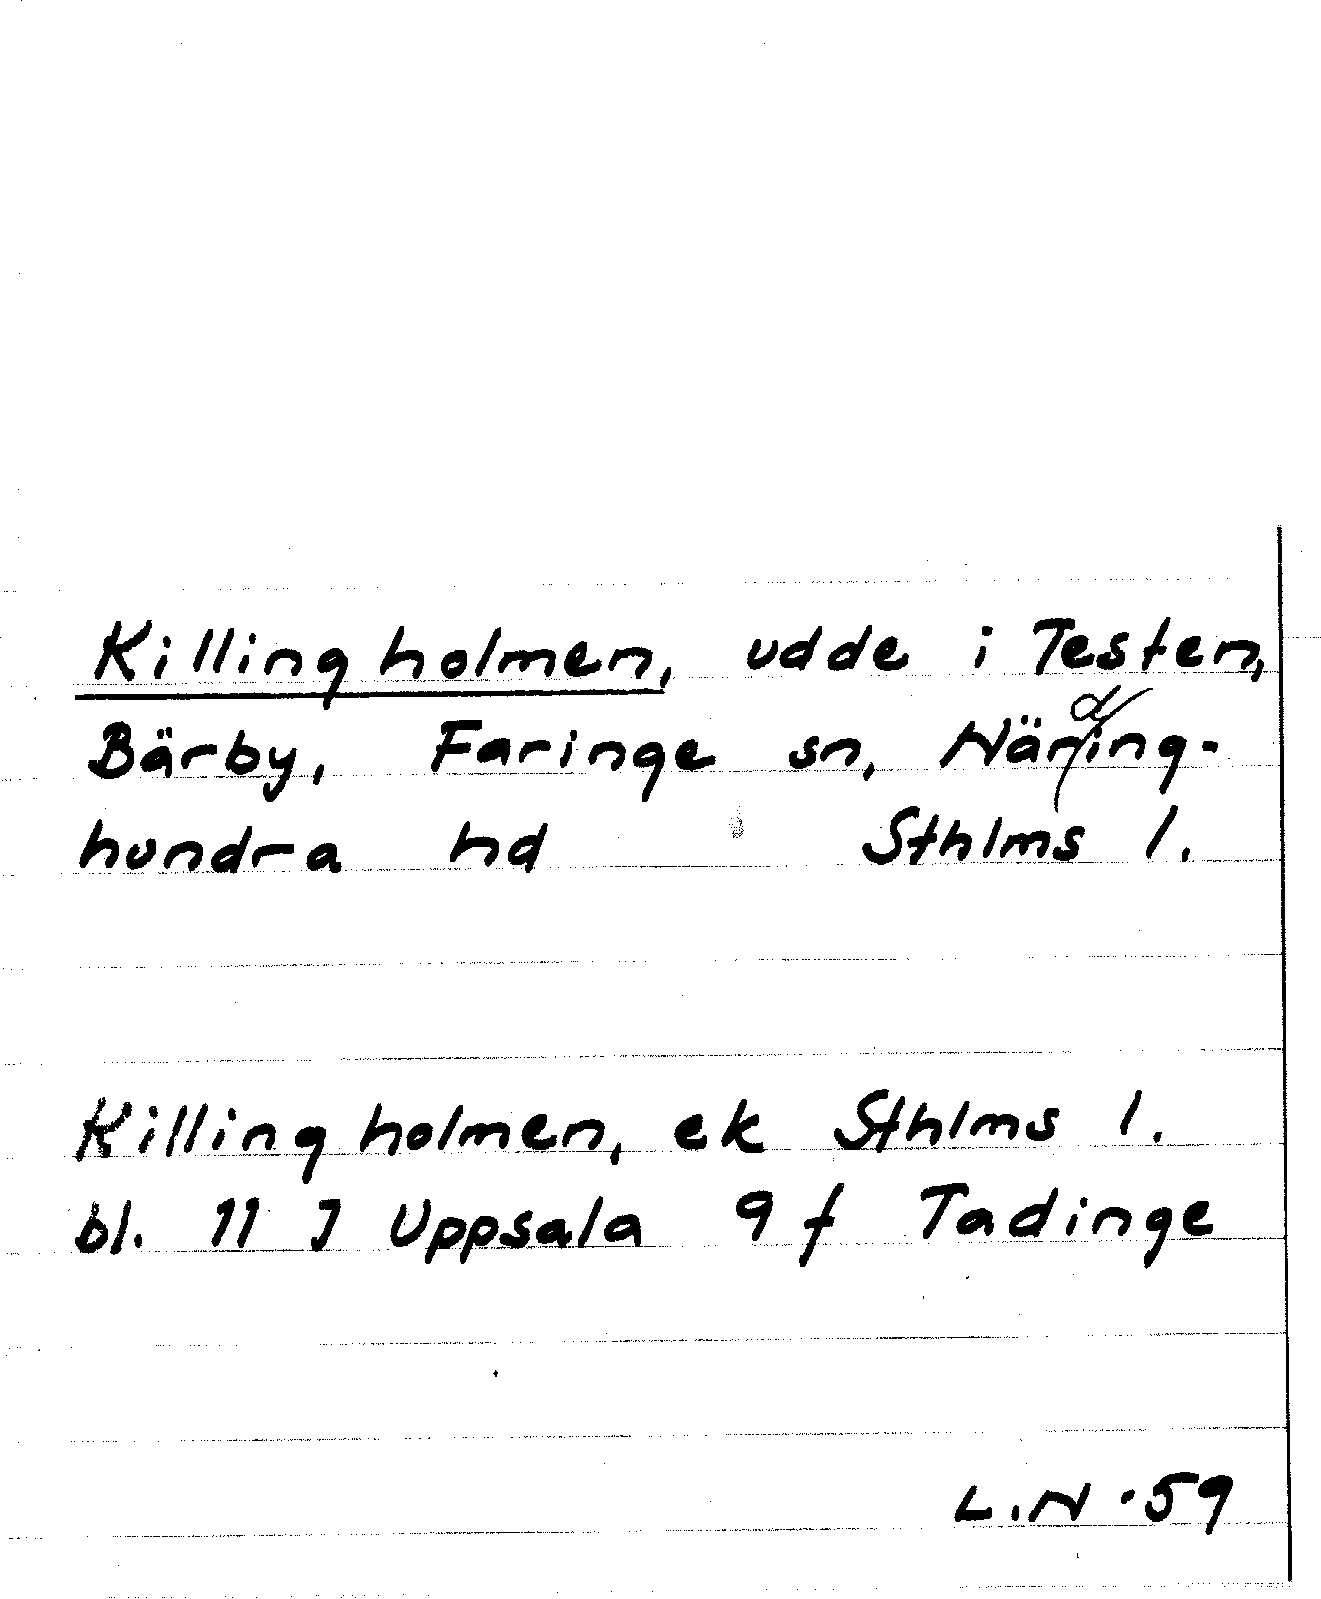 Killingholmen, udde i Testen,
Bärby, Faringe sn, Närding-
hundra hd Sthlms l.
Killingholmen, ek Sthlms l.
bl. 11 J Uppsala 9 f Tadinge
L.N. 59